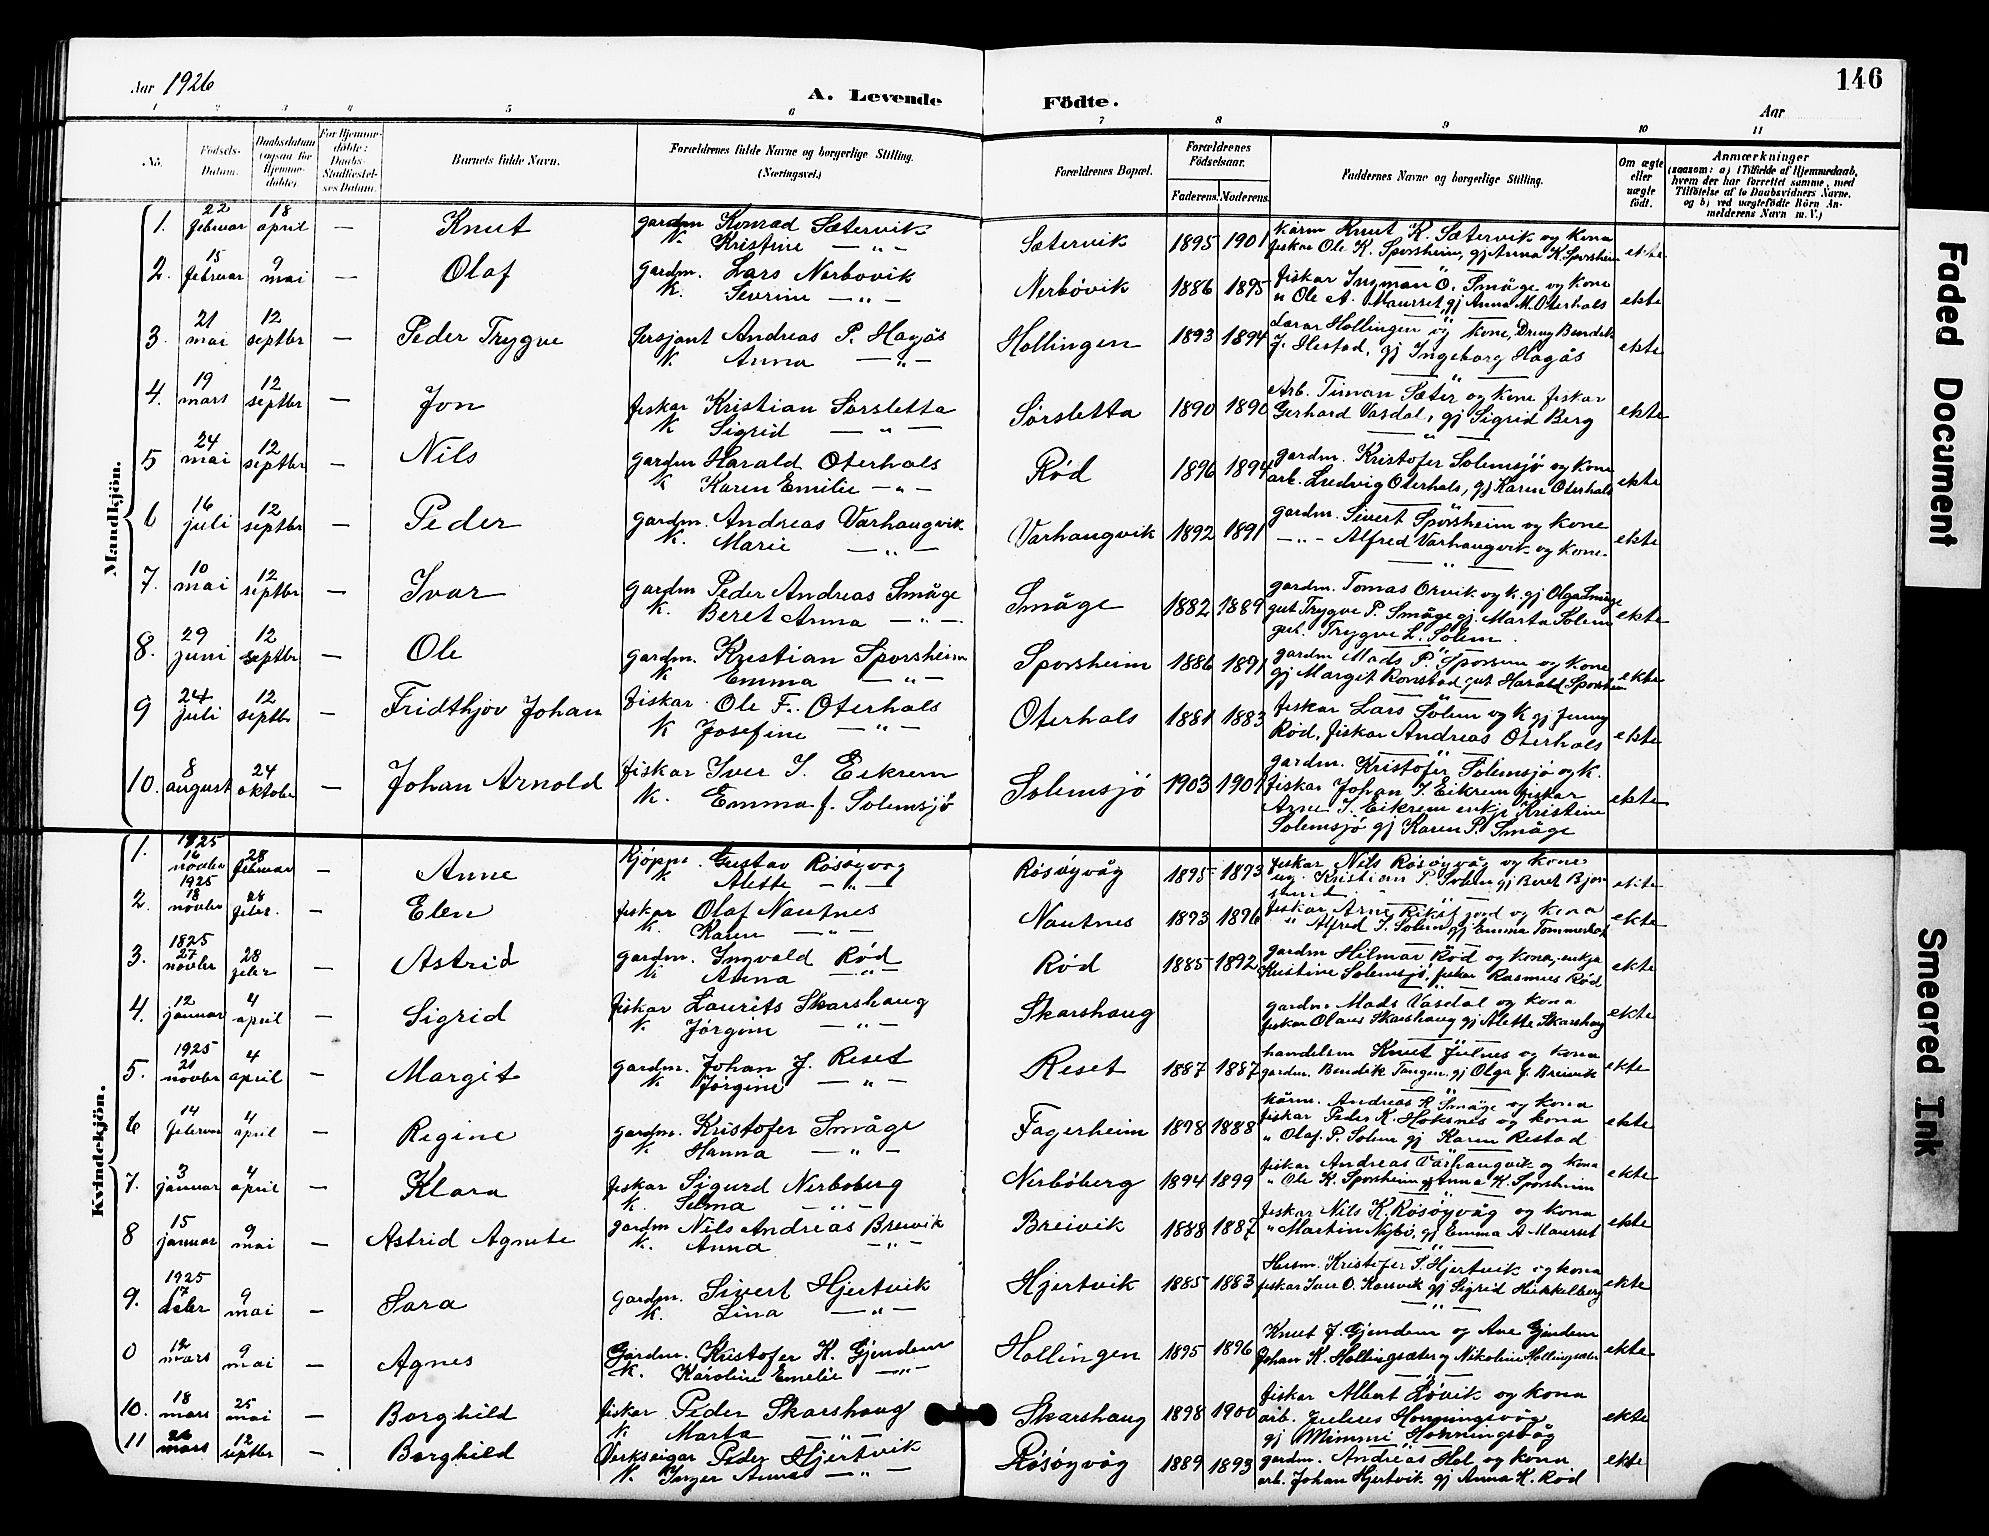 Aar 1926
A. Levende Födte.
Aar
146
1 2 3 4 5 6 7 8 9 10 11
No.
Födsels-Datum.
Daabsdatum (ogsaa for Hjemmedöbte)
For Hjemmedöbte: Daabs-Stadfæstelses Datum.
Barnets fulde Navn.
Forældrenes fulde Navne og borgerlige Stilling. (Næringsvei.)
Forældrenes Bopæl.
Forældrenes Födselsaar.
Faderens. Moderens.
Faddernes Navne og borgerlige Stilling.
Om ægte eller uægte födt.
Anmærkninger
(saasom: a) i Tilfælde af Hjemmedaab, hvem der har forrettet samme, med Tilföielse af to Daabsvidners Navne, og b) ved uægtefödte Börn Anmelderens Navn m. V.)
Mandkjön.
1. 22 februar 18 april — Knut gardm Konrad Sætervik Sætervik 1895 1901 kårm Knut K. Sætervik og kona ekte
K. Kristine — „ — fiskar Ole K. Sporsheim, gj Anna K. Sporsheim
2. 15 februar 9 mai — Olaf gardm. Lars Nerbovik Nerbövik 1886 1895 fiskar Ingman O. Småge og kone ekte
K. Severine — „ — „ Ole A. Maurset, gj Anna M. Oterhals
3. 21 mai 12 septbr — Peder Trygve sersjant Andreas P. Hagås Hollingen 1893 1894 Lærar Hollingen og kone, Dreng Bendik ekte
K. Anna — „ — J. Ilestad, gj Ingeborg Hagås
4. 19 mars 12 septbr — Jon fiskar Kristian Sørsletta Sørsletta 1890 1890 Arb. Timan Sæter og kone fiskar ekte
K Sigrid — „ — Gerhard Vasdal, gj Sigrid Berg
5 24 mai 12 septbr — Nils gardm Harald Oterhals Rød 1896 1894 gardm. Kristofer Solemsjö og kone ekte
K Karen Emilie — „ — arb. Ludvig Oterhals, gj Karen Oterhals
6 16 juli 12 septbr — Peder gardm. Andreas Varhaugvik Varhaugvik 1892 1891 gardm. Sivert Sporsheim og kone ekte
K. Marie — „ — — „ — Alfred Varhaugvik og kone.
7. 10 mai 12 septbr — Ivar gardm Peder Andreas Småge Småge 1882 1889 gardm. Tomas Orvik og k. gj Olga Småge ekte
K. Beret Anna — „ — gut Trygve P. Småge gj. Marta Solem
gut. Trygve L. Solem.
8. 29 juni 12 septbr — Ole gardm. Kristian Sporsheim Sporsheim 1886 1891 gardm Mads P. Sporsem og kone ekte
K. Emma — „ — gj Margit Ronstad gut Harald Sporsheim
9 24 juli 12 septbr — Fridthjov Johan fiskar. Ole F. Oterhals Oterhals 1881 1883 fiskar Lars Solem og K gj Jenny ekte
K Josefine — „ — Rød, fiskar Andreas Oterhals
10. 8 august 24 oktober — Johan Arnold fiskar Iver I. Eikrem Solemsjö 1903 1901 gardm. Kristofer Solemsjö og K. ekte
K. Emma f. Solemsjö fiskar Johan I Eikrem fiskar
Arne I. Eikrem enkje Kristine
Solemsjö gj Karen P. Småge
Kvindekjön.
1. 1925 16 novbr 28 februar — Anne Kjøpm. Gustav Røsøyvog Røsøyvåg 1895 1893 fiskar Nils Røsøyvåg og kone ekte
K. Alette — „ — ug. Kristian P. Solem gj Beret Bjorsund
2. 1925 18 novbr 28 febr. — Elen fiskar Olaf Nautnes Nautnes 1893 1896 fiskar Arne og kona ekte
K. Karen — „ — „ Alfred I. Solem gj Emma
3. 1825 27 novbr 28 febr — Astrid gardm. Ingvald Rød Rød 1885 1892 gardm Hilmar Rød og kona, enkja ekte
K. Anna — „ — Kristine Solemsjö, fiskar Rasmus Rød
4. 12 januar 4 april — Sigrid fiskar Laurits Skarshaug Skarshaug gardm. Mads Vasdal og kona ekte
K. Jørgine — „ — fiskar Olaus Skarshaug gj Alette Skarshaug
5. 1925 21 novbr 4 april — Margit gardm. Johan J. Reset Reset 1887 1887 handelsm Knut Julnes og kona ekte
K. Jørgine — „ — gardm. Bendik Tangen. gj Olga J. Breivik
6 14 februar 4 april — Regine gardm. Kristofer Småge Fagerheim 1898 1888 kårm. Andreas R Småge og kona ekte
K. Hanna — „ — fiskar Peder K. Hoksnes og kona
„ Olaf. P. Solem gj Karen Restad
7. 3 januar 4 april — Klara fiskar Sigurd Nerboberg Nerböberg 1894 1899 fiskar Andreas Varhaugvik og kona ekte
K. Selma — „ — „ Ole K. Sporsheim gj Anna K. Sporsheim
8 15 januar 9 mai — Astrid Agnete gardm Nils Andreas Breivik Breivik 1888 1887 fiskar Nils K. Røsøyvåg og kona ekte
K. Anna — „ — „ Martin Nybø, gj Emma A Maurset
9. 1925 17 desbr 9 mai — Sara gardm. Sivert Hjertvik Hjertvik 1885 1883 Husm. Kristofer S. Hjertvik og kona ekte
K. Lina — „ — fiskar Iver O. Korsvik gj Sigrid Hukkelberg
0 12 mars 9 mai — Agnes Gardm. Kristofer K. Gjendem Hollingen 1895 1896 Knut J. Gjendem og Ane Gjendem ekte
K. Karoline Emelie — „ — Johan K. Hollingsæter og Nikoline Hollingsæter
10. 18 mars 25 mai — Borghild fiskar Peder Skarshaug Skarshaug 1898 1900 fiskar Albert Løvik og kona ekte
K. Marta — „ — arb. Julius Honningsvåg
gj Mimmi Honningsvåg
11 26 mars 12 septbr — Borghild Verkseigar Peder Hjertvik Røsøyvåg 1889 1893 gardm. Andreas Hol og kona ekte
K. Inger Anna — „ — arb. Johan Hjertvik gj Anna K. Rød
Faded Document
Smeared Ink